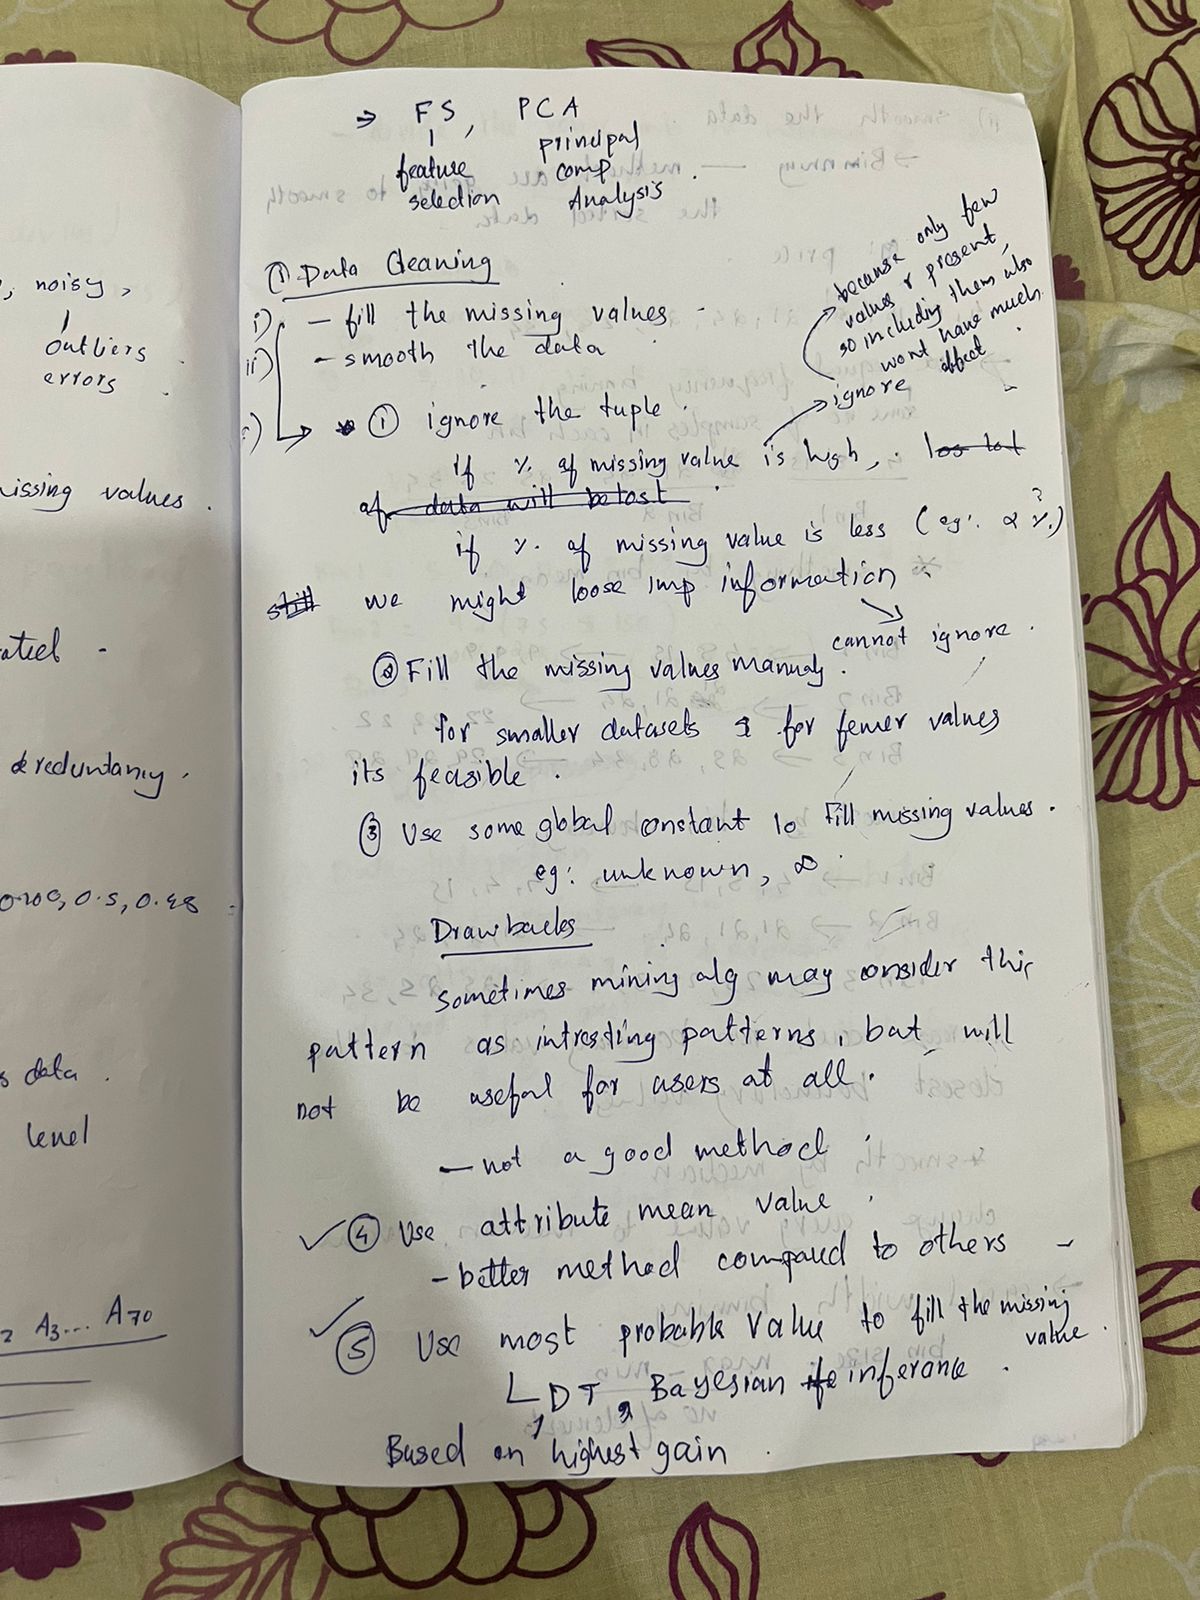 , noisy,
outliers
errors
missing values.
& reduntancy.
0.5, 0.48
data.
level
A3... A70
⇒ FS, PCA
feature selection
principal comp Analysis.
① Data Cleaning
i) - fill the missing values
ii) - smooth the data
because only few
values r present,
so including them also
wont have much
effect.
① ignore the tuple.
ignore
if %. of missing value is high, los lot
of data will be lost.
if %. of missing value is less (eg: 2 %.)
still we might loose imp information
cannot ignore.
② Fill the missing values manualy.
for smaller datasets & for fewer values
its feasible.
③ Use some global constant to Fill missing values.
eg: unknown, ∞.
Drawbacks
sometimes mining alg may consider this
pattern as intresting patterns, but will
not be useful for users at all.
- not a good method.
✓ ④ Use attribute mean value.
- better method compared to others -
✓ ⑤ Use most probable value to fill the missing
value.
DT, Bayesian inferance.
Based on highest gain.